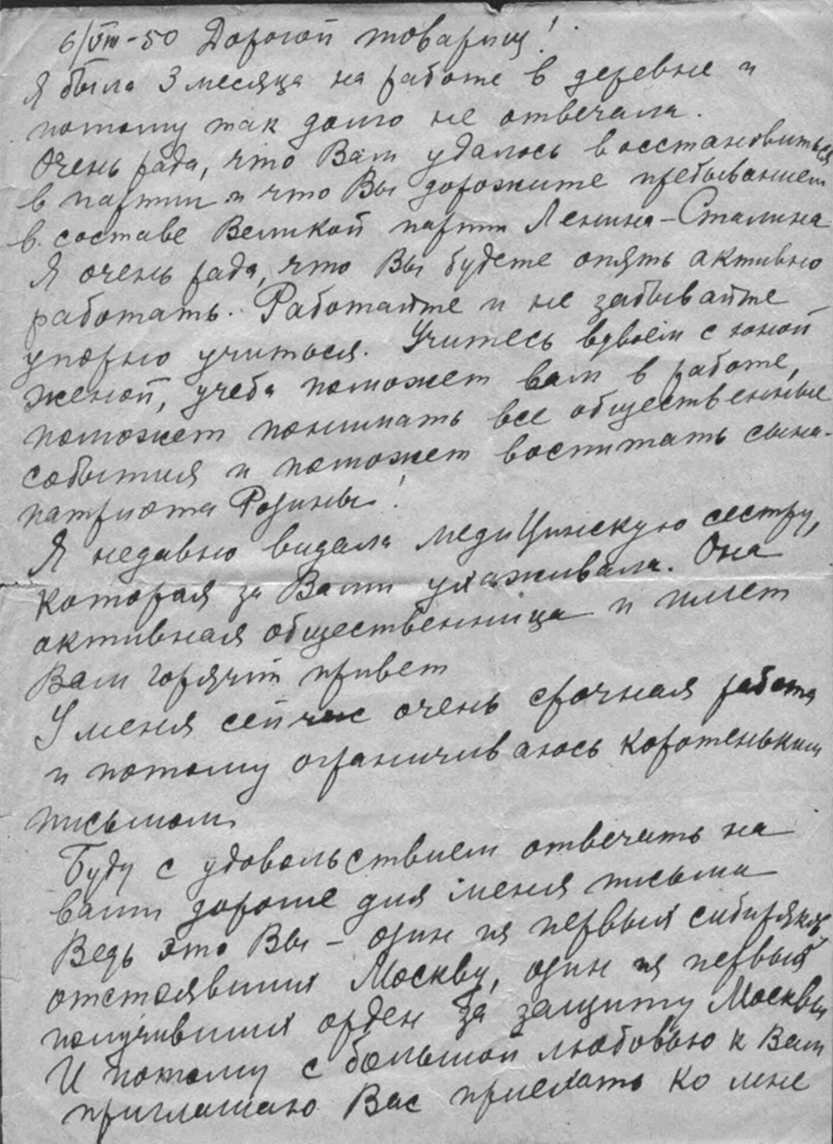 6/VIII-50 Дорогой товарищ!
Я была 3 месяца на работе в деревне и
потому так долго не отвечала.
Очень рада, что Вам удалось восстановиться
в партии и что Вы дорожите пребыванием
в составе Великой партии Ленина-Сталина
Я очень рада, что Вы будете опять активно
работать. Работайте и не забывайте
упорно учиться. Учитесь вдвоем с юной
женой, учеба поможет вам в работе,
поможет понимать все общественные
события и поможет воспитать сына-
патриота Родины!
Я недавно видала медицинскую сестру,
которая за Вами ухаживала. Она
активная общественница и шлет
Вам горячий привет
У меня сейчас очень срочная работа
и потому ограничиваюсь коротеньким
письмом
Буду с удовольствием отвечать на
ваши дорогие для меня письма
Ведь это Вы - один из первых сибиряков
отстоявших Москву, один из первых
получивших орден за защиту Москвы
И потому с большой любовью к Вам
приглашаю Вас приехать ко мне